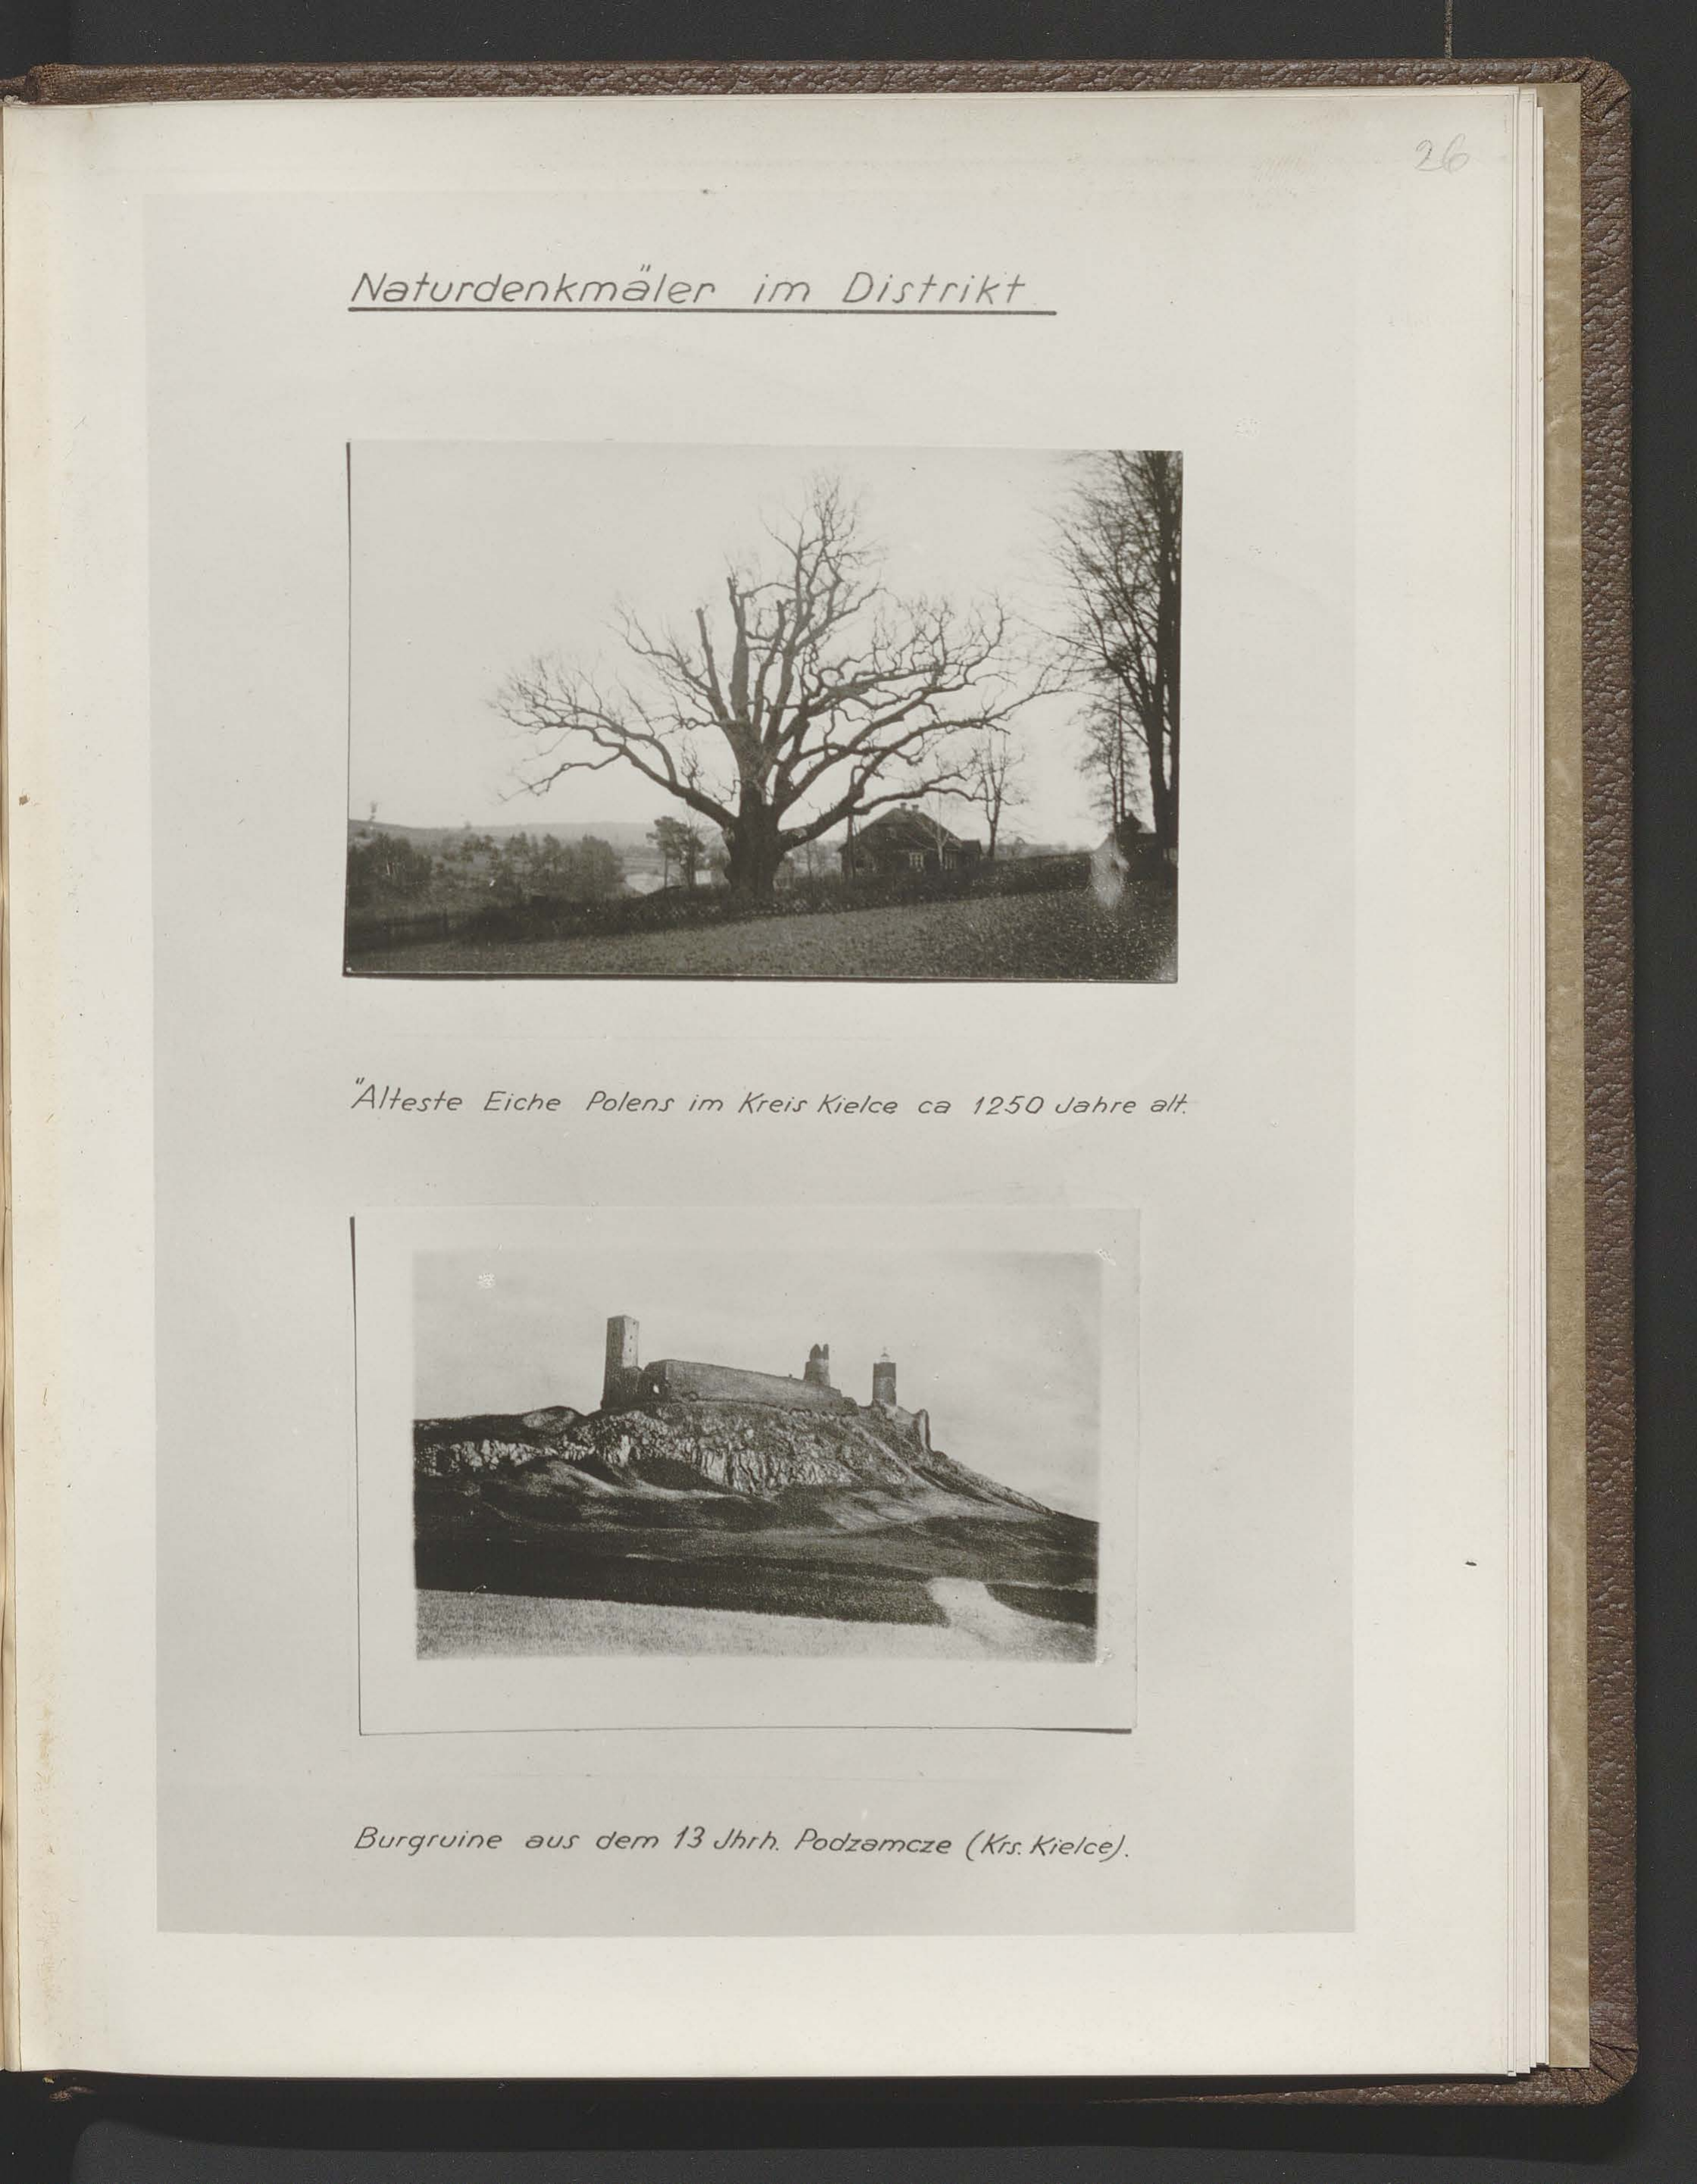 26
Naturdenkmäler im Distrikt
Älteste Eiche Polens im Kreis Kielce ca 1250 Jahre alt.
Burgruine aus dem 13 Jhrh. Podzamcze (Krs. Kielce).